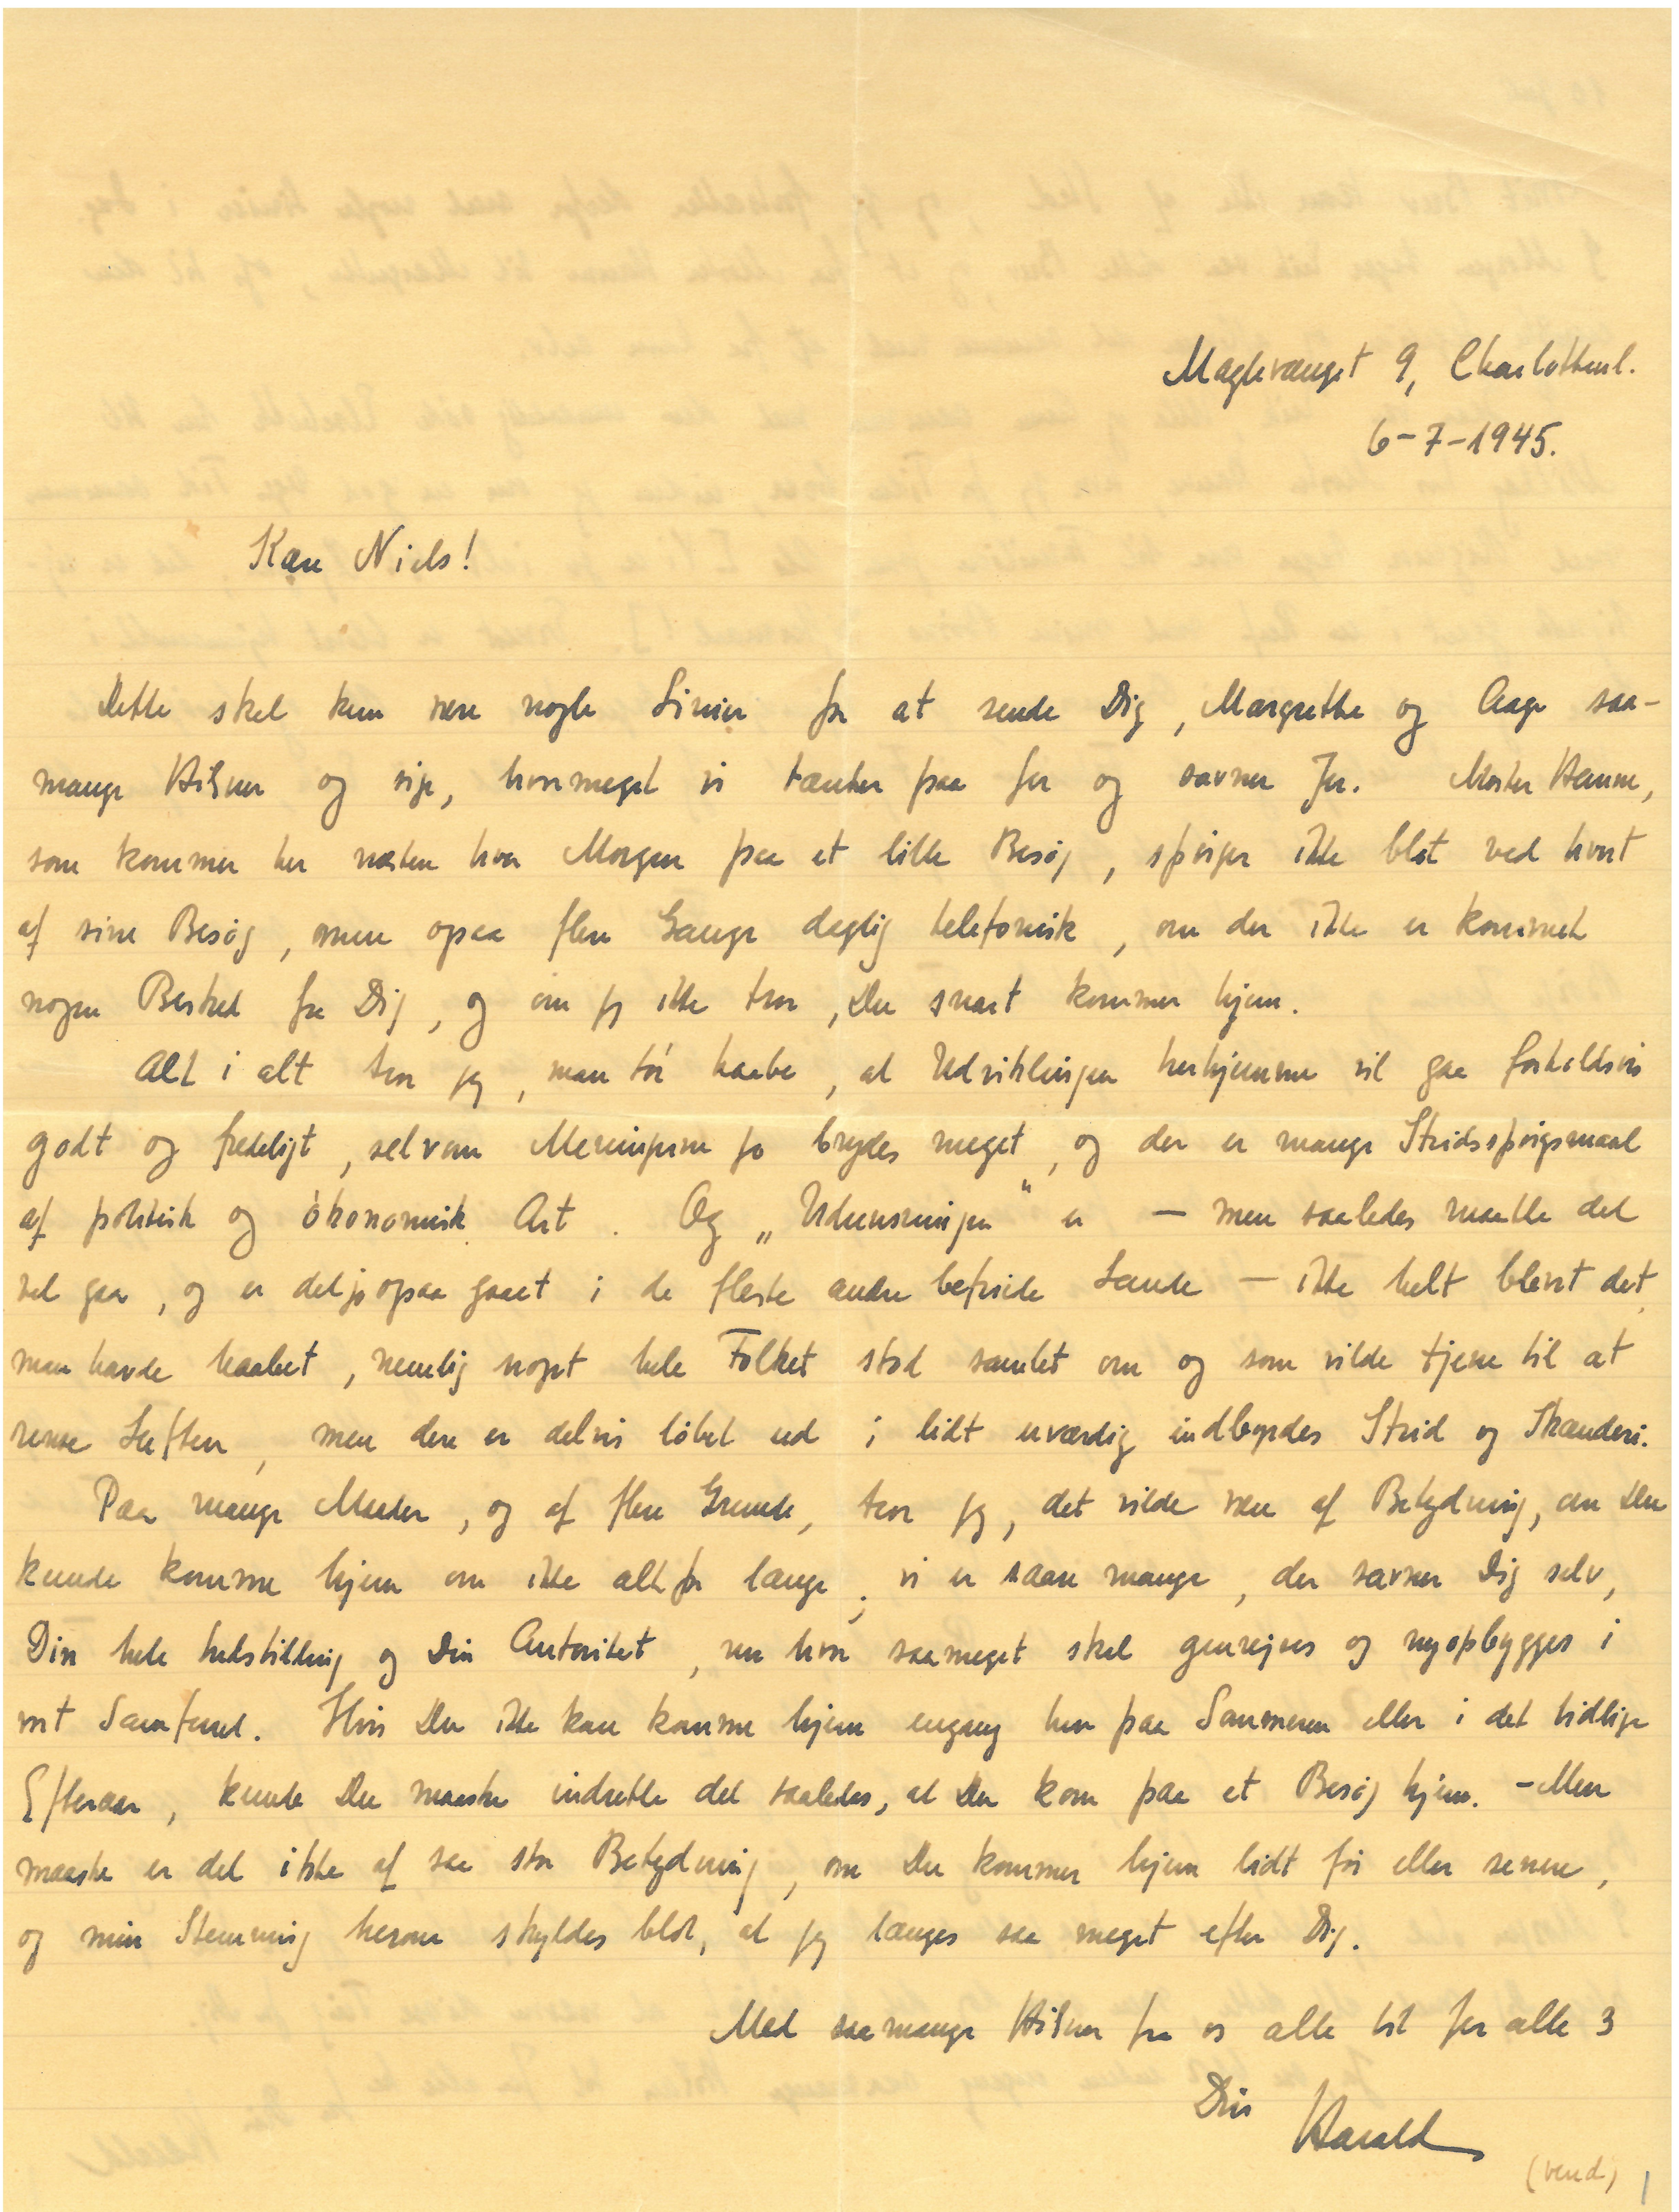 Maglevænget 9, Charlottenl.
6-7-1945.
Kære Niels!
Dette skal kun være nogle Linier for at sende Dig, Margrethe og Aage saa-
mange Hilsner og sige, hvormeget vi tænker paa Jer og savner Jer. Moster Hanne,
som kommer her næsten hver Morgen paa et lille Besøg, spørger ikke blot ved hvert
af sine Besøg, men ogsaa flere Gange daglig telefonisk, om der ikke er kommet
nogen Besked fra Dig, og om jeg ikke tror, Du snart kommer hjem.
Alt i alt tror jeg, man tør haabe, at Udviklingen herhjemme vil gaa forholdsvis
godt og fredeligt, selvom Meningerne jo brydes meget, og der er mange Stridsspørgsmaal
af politisk og økonomisk Art. Og „Udrensningen" er — men saaledes maatte det
vel gaa, og er det jo ogsaa gaaet i de fleste andre befriede Lande — ikke helt blevet det,
man havde haabet, nemlig noget hele Folket stod samlet om og som vilde tjene til at
rense Luften, men den er delvis løbet ud i lidt uværdig indbyrdes Strid og Skænderi.
Paa mange Maader, og af flere Grunde, tror jeg, det vilde være af Betydning, om Du
kunde komme hjem om ikke altfor længe; vi er saare mange, der savner Dig selv,
Din hele Indstilling og Din Autoritet, nu hvor saameget skal genrejses og nyopbygges i
vort Samfund. Hvis Du ikke kan komme hjem engang hen paa Sommeren eller i det tidlige
Efteraar, kunde Du maaske indrette det saaledes, at Du kom paa et Besøg hjem. - Men
maaske er det ikke af saa stor Betydning, om Du kommer hjem lidt før eller senere,
og min Stemning herom skyldes blot, at jeg længes saa meget efter Dig.
Med saamange Hilsner fra os alle til Jer alle 3
Din
Harald
(vend) 1